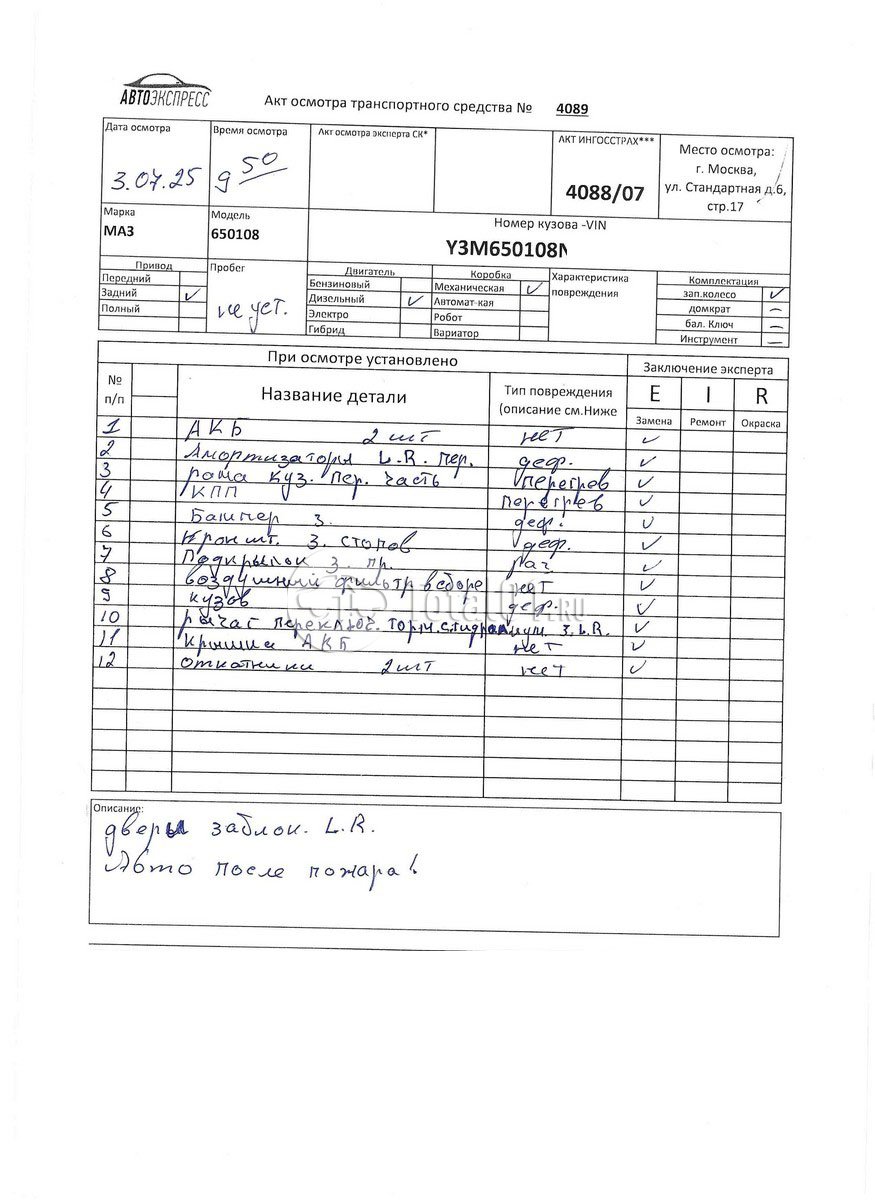 АВТОЭКСПРЕСС
Акт осмотра транспортного средства № 4089
Дата осмотра Время осмотра Акт осмотра эксперта СК* АКТ ИНГОССТРАХ*** Место осмотра:
г. Москва,
3.07.25 9 50 4088/07 ул. Стандартная д.6,
стр.17
Марка Модель Номер кузова -VIN
МАЗ 650108 Y3M650108N
Привод Пробег Двигатель Коробка Характеристика Комплектация
повреждения
Передний Бензиновый Механическая ✓ зап.колесо ✓
Задний ✓ не уст. Дизельный ✓ Автомат-кая домкрат —
Полный Электро Робот бал. Ключ —
Гибрид Вариатор Инструмент —
При осмотре установлено Заключение эксперта
№ п/п Название детали Тип повреждения (описание см.Ниже E I R
Замена Ремонт Окраска
1 АКБ 2 шт нет ✓
2 Амортизаторы L.R. пер. деф. ✓
3 рама куз. пер. часть перегрев ✓
4 КПП перегрев ✓
5 Бампер з. деф. ✓
6 Кроншт. з. стопов деф. ✓
7 Подкрылок з. пр. ✓
8 воздушний фильтр в сборе нет ✓
9 кузов деф. ✓
10 рычаг переключ. торм. з. L.R. ✓
11 крышка АКБ нет ✓
12 откатники 2 шт нет ✓
TotalCar.RU
Описание:
двери заблок. L.R.
Авто после пожара!